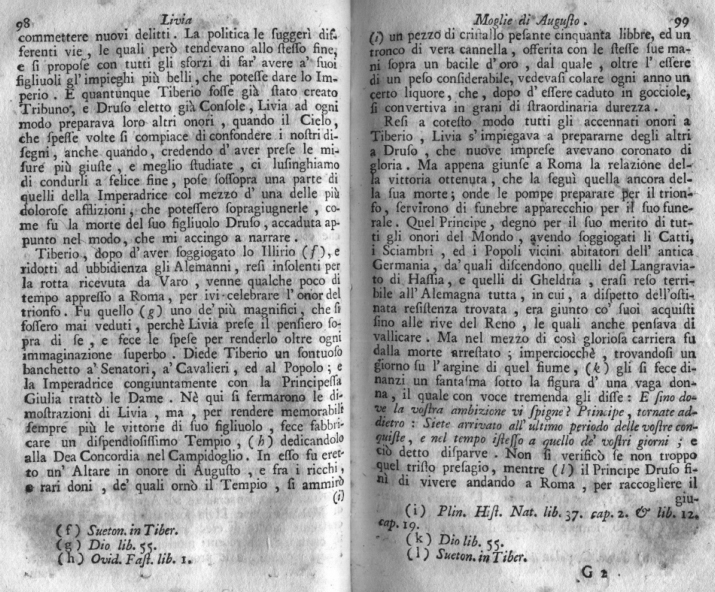 98 Livia
commettere nuovi delitti. La politica le suggerì dif-
ferenti vie, le quali però tendevano allo ſteſſo fine,
e ſi propoſe con tutti gli sforzi di far' avere a' ſuoi
figliuoli gl' impieghi più belli, che poteſſe dare lo Im-
perio. E quantunque Tiberio foſſe già ſtato creato
Tribuno, e Druſo eletto già Conſole, Livia ad ogni
modo preparava loro altri onori, quando il Cielo,
che ſpeſſe volte ſi compiace di confondere i noſtri di-
ſegni, anche quando, credendo d' aver preſe le mi-
ſure più giuſte, e meglio ſtudiate, ci luſinghiamo
di condurli a felice fine, poſe ſoſſopra una parte di
quelli della Imperadrice col mezzo d' una delle più
doloroſe afflizioni, che poteſſero ſopragiugnerle, co-
me fu la morte del ſuo figliuolo Druſo, accaduta ap-
punto nel modo, che mi accingo a narrare.
Tiberio, dopo d' aver ſoggiogato lo Illirio (f), e
ridotti ad ubbidienza gli Alemanni, reſi inſolenti per
la rotta ricevuta da Varo, venne qualche poco di
tempo appreſſo a Roma, per ivi celebrare l' onor del
trionfo. Fu quello (g) uno de' più magnifici, che ſi
foſſero mai veduti, perchè Livia preſe il penſiero ſo-
pra di ſe, e fece le ſpeſe per renderlo oltre ogni
immaginazione ſuperbo. Diede Tiberio un ſontuoſo
banchetto a' Senatori, a' Cavalieri, ed al Popolo; e
la Imperadrice congiuntamente con la Principeſſa
Giulia trattò le Dame. Nè qui ſi fermarono le di-
moſtrazioni di Livia, ma, per rendere memorabili
ſempre più le vittorie di ſuo figliuolo, fece fabbri-
care un diſpendioſiſſimo Tempio, (h) dedicandolo
alla Dea Concordia nel Campidoglio. In eſſo fu eret-
to un' Altare in onore di Auguſto, e fra i ricchi,
e rari doni, de' quali ornò il Tempio, ſi ammirò
(i)
(f) Sueton. in Tiber.
(g) Dio lib. 55.
(h) Ovid. Faſt. lib. 1.
Moglie di Auguſto. 99
(i) un pezzo di criſtallo peſante cinquanta libbre, ed un
tronco di vera cannella, offerita con le ſteſſe ſue ma-
ni ſopra un bacile d' oro, dal quale, oltre l' eſſere
di un peſo conſiderabile, vedevaſi colare ogni anno un
certo liquore, che, dopo d' eſſere caduto in gocciole,
ſi convertiva in grani di ſtraordinaria durezza.
Reſi a coteſto modo tutti gli accennati onori a
Tiberio, Livia s' impiegava a prepararne degli altri
a Druſo, che nuove impreſe avevano coronato di
gloria. Ma appena giunſe a Roma la relazione del-
la vittoria ottenuta, che la ſeguì quella ancora del-
la ſua morte; onde le pompe preparate per il trion-
fo, ſervirono di funebre apparecchio per il ſuo fune-
rale. Quel Principe, degno per il ſuo merito di tut-
ti gli onori del Mondo, avendo ſoggiogati li Catti,
i Sciambri, ed i Popoli vicini abitatori dell' antica
Germania, da' quali diſcendono quelli del Langravia-
to di Haſſia, e quelli di Gheldria, eraſi reſo terri-
bile all' Alemagna tutta, in cui, a diſpetto dell' oſti-
nata reſiſtenza trovata, era giunto co' ſuoi acquiſti
fino alle rive del Reno, le quali anche penſava di
vallicare. Ma nel mezzo di così glorioſa carriera fu
dalla morte arreſtato; imperciocchè, trovandoſi un
giorno ſu l' argine di quel fiume, (k) gli ſi fece di-
nanzi un fantaſma ſotto la figura d' una vaga don-
na, il quale con voce tremenda gli diſſe: E fino do-
ve la voſtra ambizione vi ſpigne? Principe, tornate ad-
dietro: Siete arrivato all' ultimo periodo delle voſtre con-
quiſte, e nel tempo iſteſſo a quello de' voſtri giorni; e
ciò detto diſparve. Non ſi verificò ſe non troppo
quel triſto preſagio, mentre (l) il Principe Druſo fi-
nì di vivere andando a Roma, per raccogliere il
giu-
(i) Plin. Hiſt. Nat. lib. 37. cap. 2. & lib. 12.
cap. 19.
(k) Dio lib. 55.
(l) Sueton. in Tiber.
G 2